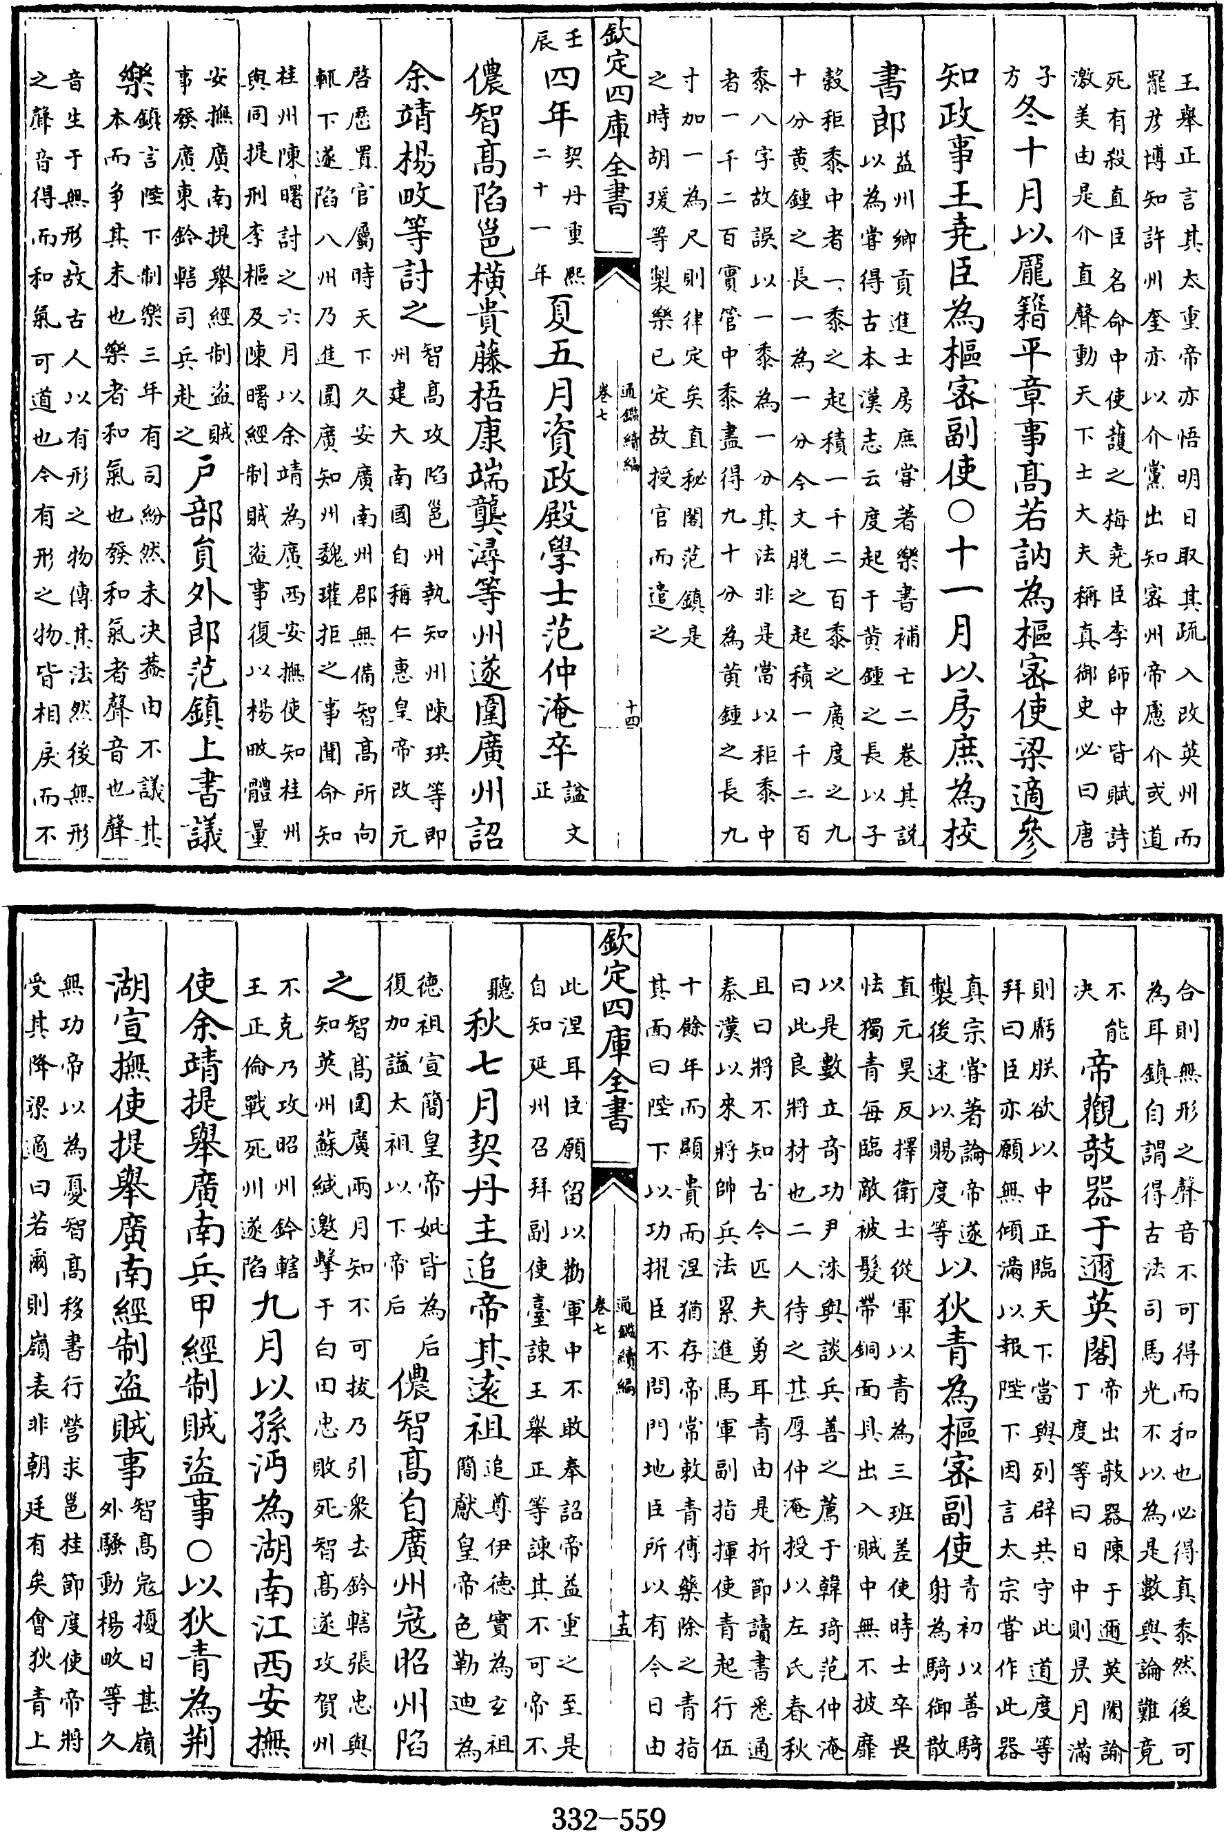 王舉正言其太重帝亦悟明日取其疏入改英州而
罷彥博知許州奎亦以介黨出知密州帝慮介或道
死有殺直臣名命中使護之梅堯臣李師中皆賦詩
激美由是介直聲動天下士大夫稱真御史必曰唐
子方冬十月以龎籍平章事高若訥為樞密使梁適參
知政事王堯臣為樞密副使○十一月以房庶為校
書郎益州鄉貢進士房庶嘗著樂書補亡二卷其說
以為嘗得古本漢志云度起于黄鍾之長以子
榖秬黍中者一黍之起積一千二百黍之廣度之九
十分黄鍾之長一為一分今文脱之起積一千二百
黍八字故誤以一黍為一分其法非是當以秬黍中
者一千二百實管中黍盡得九十分為黄鍾之長九
寸加一為尺則律定矣直秘閣范鎮是
之時胡瑗等製樂已定故授官而遣之
欽定四庫全書
通鑑續編
卷七
十四
壬辰四年契丹重熙二十一年夏五月資政殿學士范仲淹卒諡文正
儂智高陷邕橫貴藤梧康端龔潯等州遂圍廣州詔
余靖楊畋等討之智高攻陷邕州執知州陳珙等即
州建大南國自稱仁惠皇帝改元
啓歴置官屬時天下久安廣南州郡無備智高所向
輒下遂陷八州乃進圍廣知州魏瓘拒之事聞命知
桂州陳曙討之六月以余靖為廣西安撫使知桂州
與同提刑李樞及陳曙經制賊盜事復以楊畋體量
安撫廣南提舉經制盜賊
事發廣東鈐轄司兵赴之戶部員外郎范鎮上書議
樂鎮言陛下制樂三年有司紛然未決葢由不議其
本而爭其末也樂者和氣也發和氣者聲音也聲
音生于無形故古人以有形之物傳其法然後無形
之聲音得而和氣可道也今有形之物皆相戾而不
合則無形之聲音不可得而和也必得真黍然後可
為耳鎮自謂得古法司馬光不以為是數與論難竟
不能決帝觀敧器于邇英閣帝出敧器陳于邇英閣諭
丁度等曰日中則昃月滿
則虧朕欲以中正臨天下當與列辟共守此道度等
拜曰臣亦願無傾滿以報陛下因言太宗嘗作此器
真宗嘗著論帝遂
製後述以賜度等以狄青為樞密副使青初以善騎
射為騎御散
直元昊反擇衛士從軍以青為三班差使時士卒畏
怯獨青每臨敵被髮帶銅面具出入賊中無不披靡
以是數立奇功尹洙與談兵善之薦于韓琦范仲淹
曰此良將材也二人待之甚厚仲淹授以左氏春秋
且曰將不知古今匹夫勇耳青由是折節讀書悉通
秦漢以來將帥兵法累進馬軍副指揮使青起行伍
十餘年而顯貴而涅猶存帝常敕青傅藥除之青指
其面曰陛下以功擢臣不問門地臣所以有今日由
欽定四庫全書
通鑑續編
卷七
十五
此涅耳臣願留以勸軍中不敢奉詔帝益重之至是
自知延州召拜副使臺諫王舉正等諫其不可帝不
聽秋七月契丹主追帝其遠祖追尊伊德實為玄祖
簡獻皇帝色勒迪為
德祖宣簡皇帝妣皆為后
復加諡太祖以下帝后儂智高自廣州寇昭州陷
之智高圍廣兩月知不可拔乃引衆去鈐轄張忠與
知英州蘇緘邀擊于白田忠敗死智高遂攻賀州
不克乃攻昭州鈐轄
王正倫戰死州遂陷九月以孫沔為湖南江西安撫
使余靖提舉廣南兵甲經制賊盜事○以狄青為荆
湖宣撫使提舉廣南經制盜賊事智高寇擾日甚嶺
外騷動楊畋等久
無功帝以為憂智高移書行營求邕桂節度使帝將
受其降梁適曰若爾則嶺表非朝廷有矣會狄青上
332-559